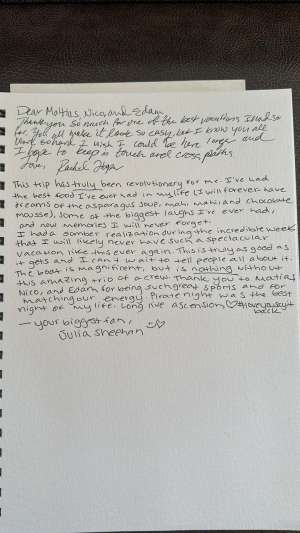 Dear Matias, Nico, and Edam,
Thank you so much for one of the best vacations I had so
far. You all make it look so easy, but I know you all
work so hard. I wish I could be here longer and
I hope to keep in touch and cross paths.
Love, Rachel
This trip has truly been revolutionary for me. I've had
the best food I've ever had in my life (I will forever have
dreams of the asparagus soup, mahi mahi and chocolate
mousse), some of the biggest laughs I've ever had,
and now memories I will never forget.
I had a somber realization during the incredible week
that I will likely never have such a spectacular
vacation like this ever again. This is truly as good as
it gets and I can't wait to tell people all about it.
The boat is magnificent, but is nothing without
this amazing trio of a crew. Thank you to Matias,
Nico, and Edam for being such great sports and for
matching our energy. Pirate night was the best
night of my life. Long live Ascension,
back
— your biggest fan,
Julia Sheehan